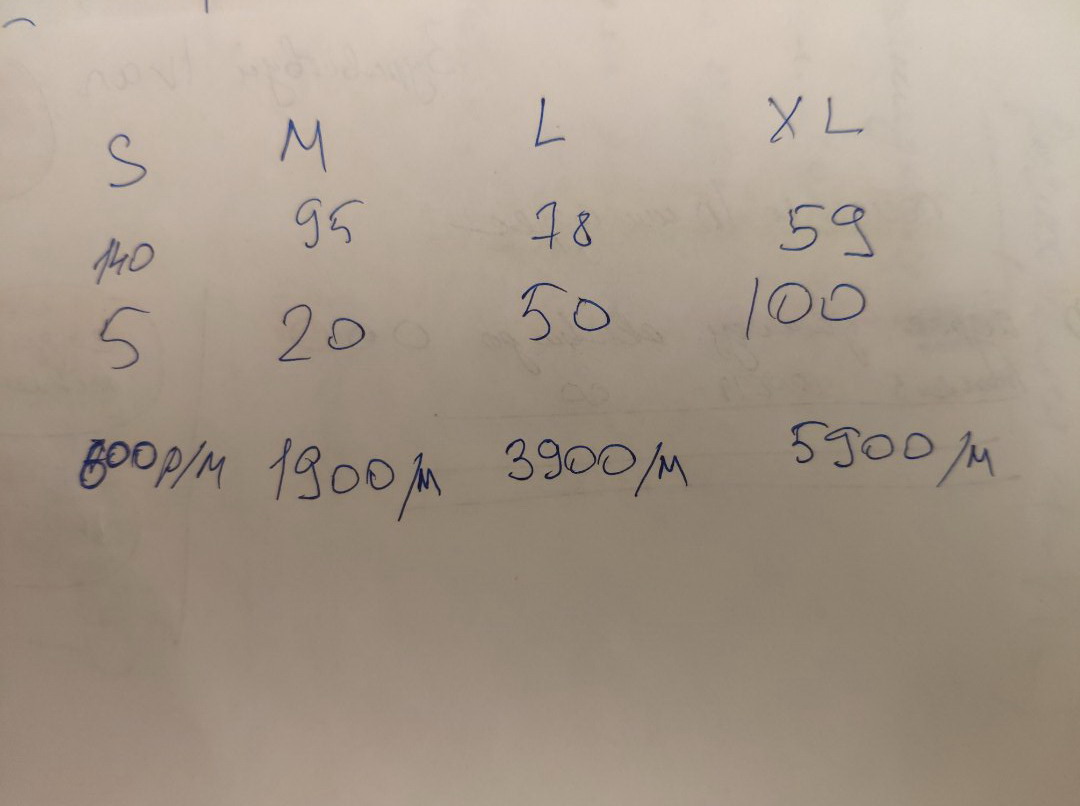 S M L XL
140 95 78 59
5 20 50 100
600р/м 1900/м 3900/м 5900/м